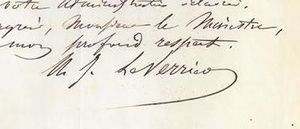 votre Administration éclairée.
agréer, Monsieur le Ministre,
mon profond respect.
U. J. Le Verrier